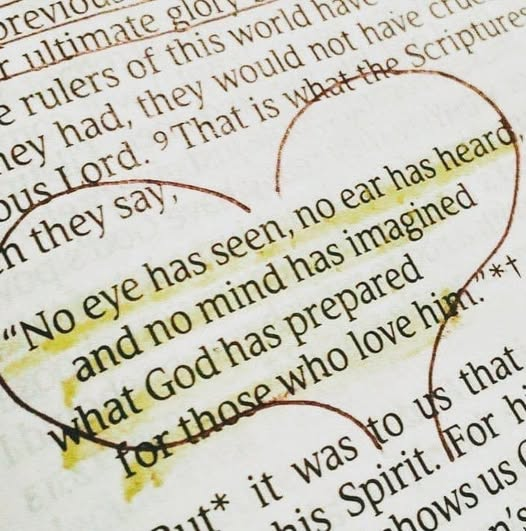 previous
r ultimate glory
e rulers of this world have
hey had, they would not have
ous Lord. 9 That is what the Scriptures
n they say,
“No eye has seen, no ear has heard,
and no mind has imagined
what God has prepared
for those who love him.”*†
But* it was to us that
his Spirit. For h
hows us G
n's